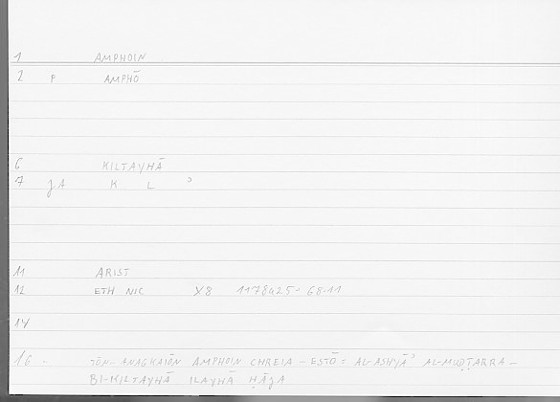 1 AMPHOIN
2 P AMPHŌ
6 KILTAYHĀ
7 JA K L ʾ
11 ARIST
12 ETH NIC X8 1178a25-68.11
14
16 - TŌN-ANAGKAIŌN AMPHOIN CHREIA - ESTŌ: AL-ASHYĀʾ AL-MUḌṬARRA -
BI-KILTAYHĀ ILAYHĀ ḤĀJA